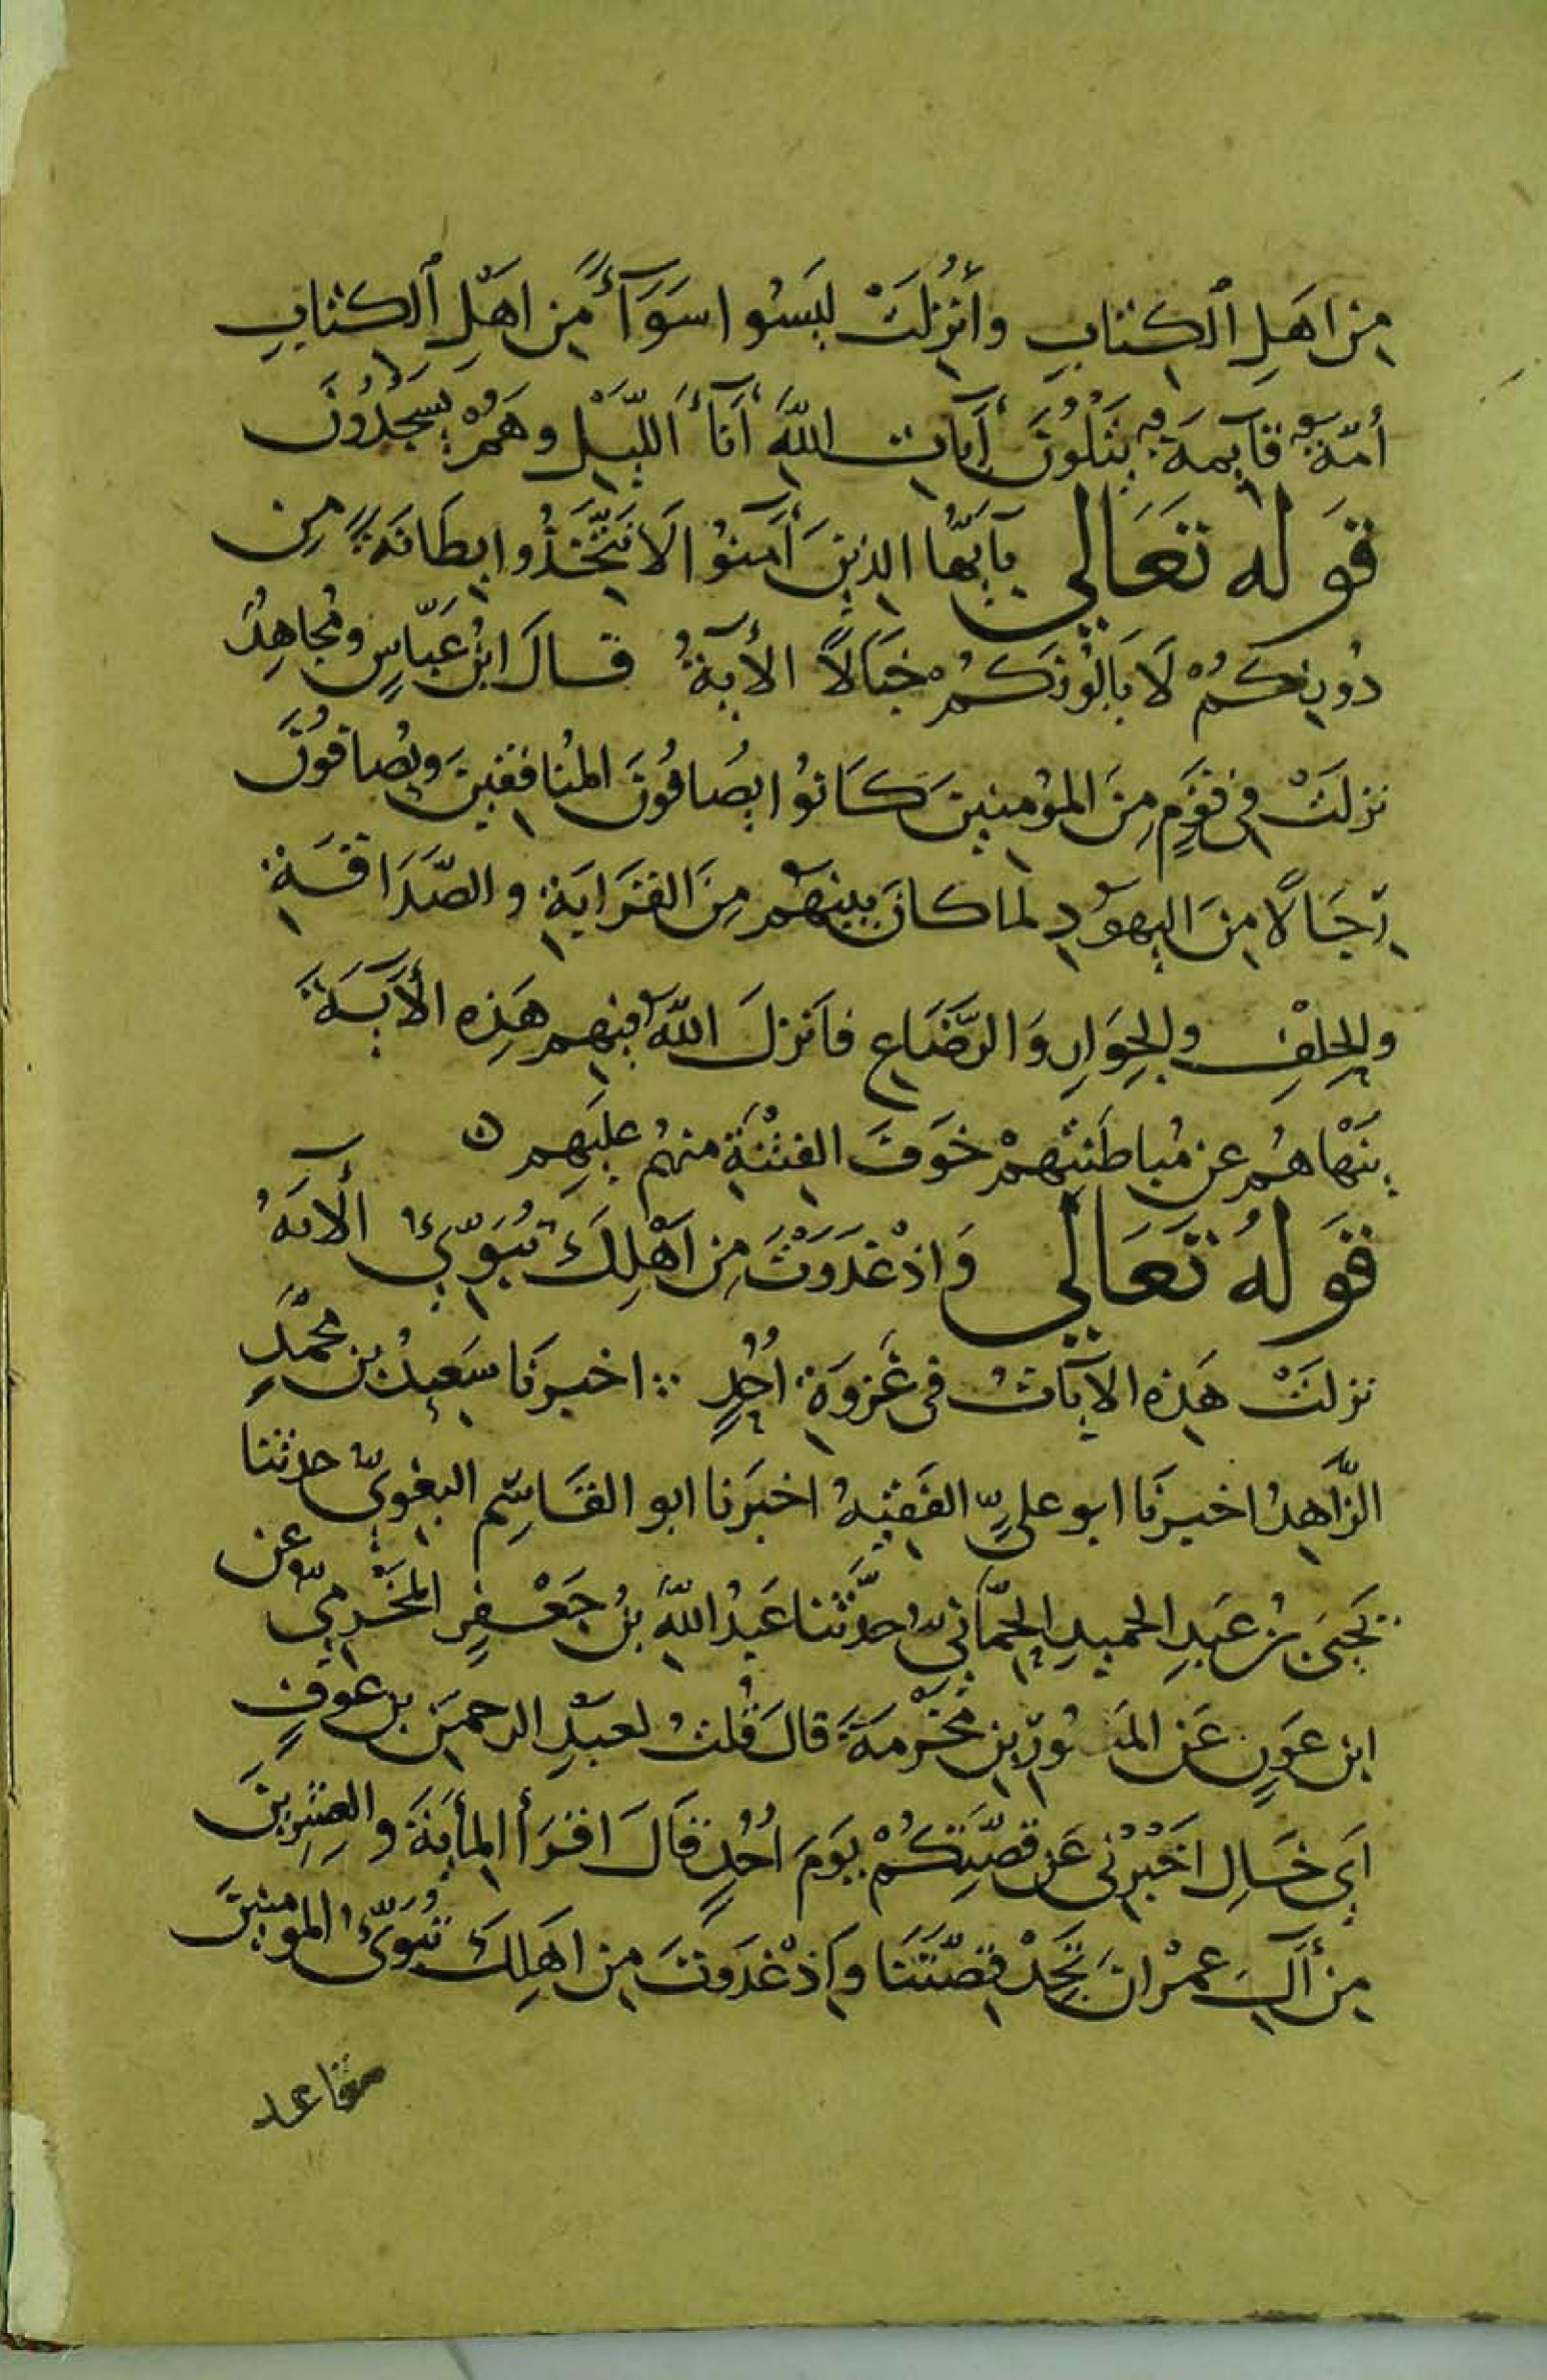 مِنْ اهَلِ ٱلكتابِ وأُنْزِلَتْ ليَسُوا سَوَآءً مِّن اهَلِ ٱلكتابِ
أُمّةٌ قآيمَةٌ يَتْلُونَ أيَاتِ اللهِ أنَآءَ اللّيْلِ وهَمُ يَسجُدُونَ
قوله تعَالي يآيّها الذِينَ أَمَنوُا لَا تَتَّخِذُوا بِطَانَةً مِن
دُونِكمُ لَا يَالُونَكمُ خبَالًا الأيةُ قال ابنُ عَبّاسٍ ومُجاهِدُ
نزلَتْ في قوَمٍ مِنَ المؤمنينَ كَانوُا يصُافُونَ المنُافقينَ ويُصافُونَ
رِجَالًا مِنَ اليهوَدِ لما كانَ بينهَمُ مِنَ القرَابَةِ والصّدَاقَةِ
والحِلفِ والجِوَارِ وَالرّضَاعِ فانَزلَ اللهُ فيهم هَذِه الأيَةَ
يَنْهاهُم عن مُباطَنَتِهمْ خوَفَ الفِتْنَةِ منهُم عليَهِم ن
قوَلهُ تعَالي وَاذْ غدَوَتَ مِن اَهْلِكَ تبُوّئُ الأيَهُ
نزلَتْ هَذِه الايَاتُ في غَزوَةِ اُحُدٍ ∴ اخبرنَا سَعيدُ بن محمّدٍ
الزّاهِدُ اخبرنَا ابو عليٍّ الفَقيهُ اخبَرَنا ابو القَاسِم البغويّ حدثنا
يَحيَى بنُ عبَدِ الحميدِ الحِمّانيّ حدّثنا عَبدُ اللهِ بنُ جَعْفرٍ المَخْرميّ عن
ابن عوَنٍ عَن المِسْوَرِ بنِ مَخْرمَةَ قالَ قلُتُ لعبَدِ الرحمنَ بن عوَفٍ
اَيْ خَالِ اخَبْرني عَن قصّتِكُمْ يوَمَ اُحُدٍ فقَالَ اقرَأ المِأيَةَ والعِشرِينَ
مِن أَلِ عمرْانَ تَجِدْ قصّتَنا وَاذْ غدَوَتَ مِن اهَلِكَ تبُوّئُ المومنينَ
مقاعد